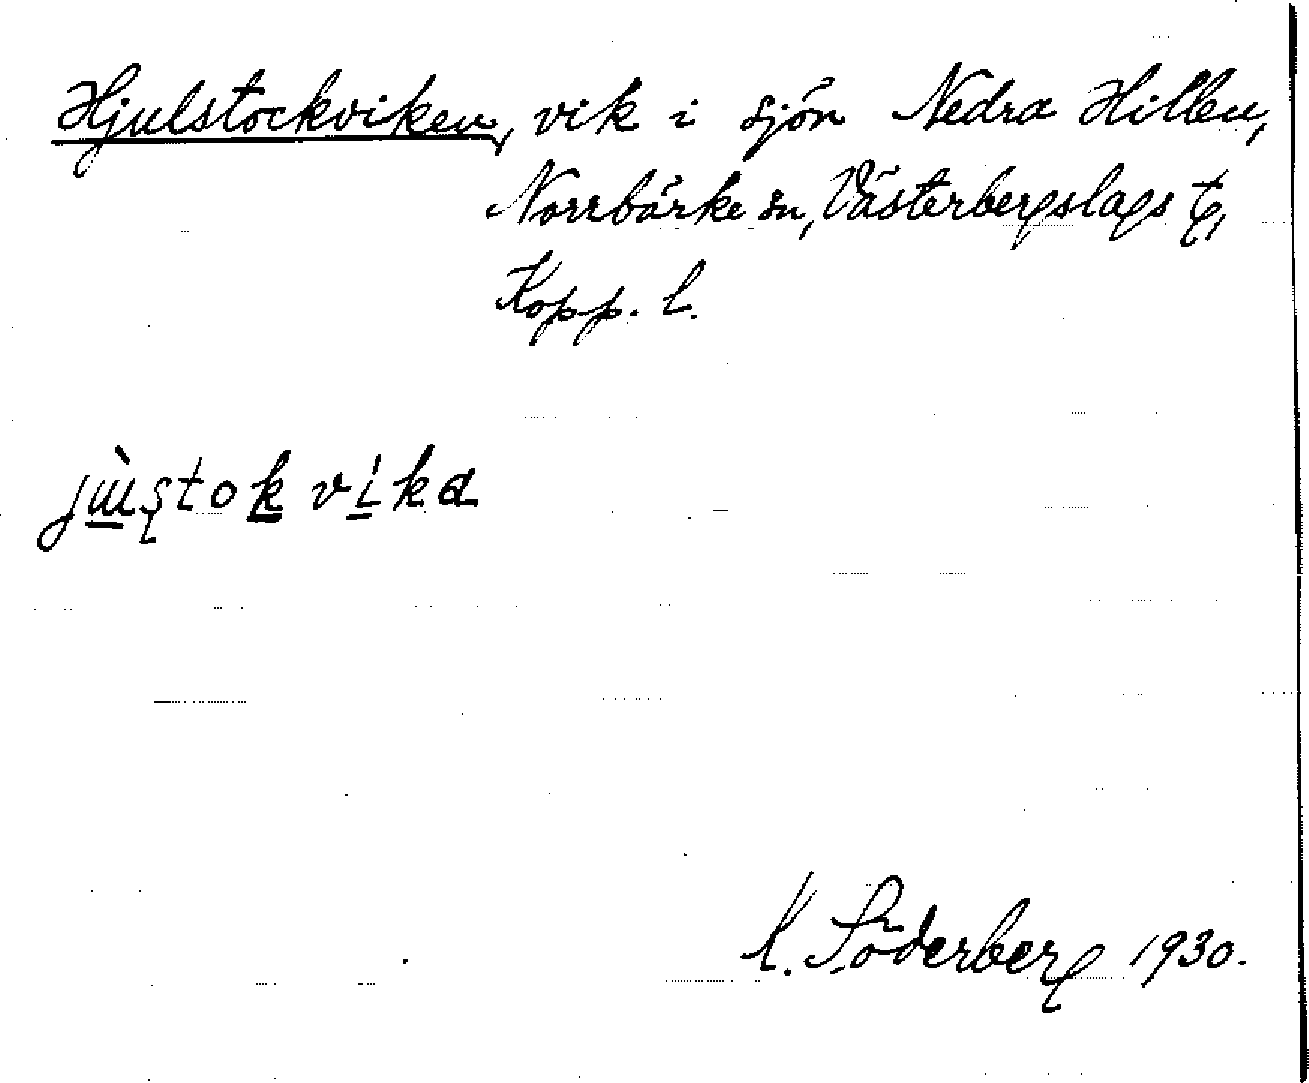 Hjulstockviken, vik i sjön Nedra Hillen,
Norrbärke sn, Västerbergslags tg,
Kopp. l.
jɯ̀stok víka
K. Söderberg 1930.